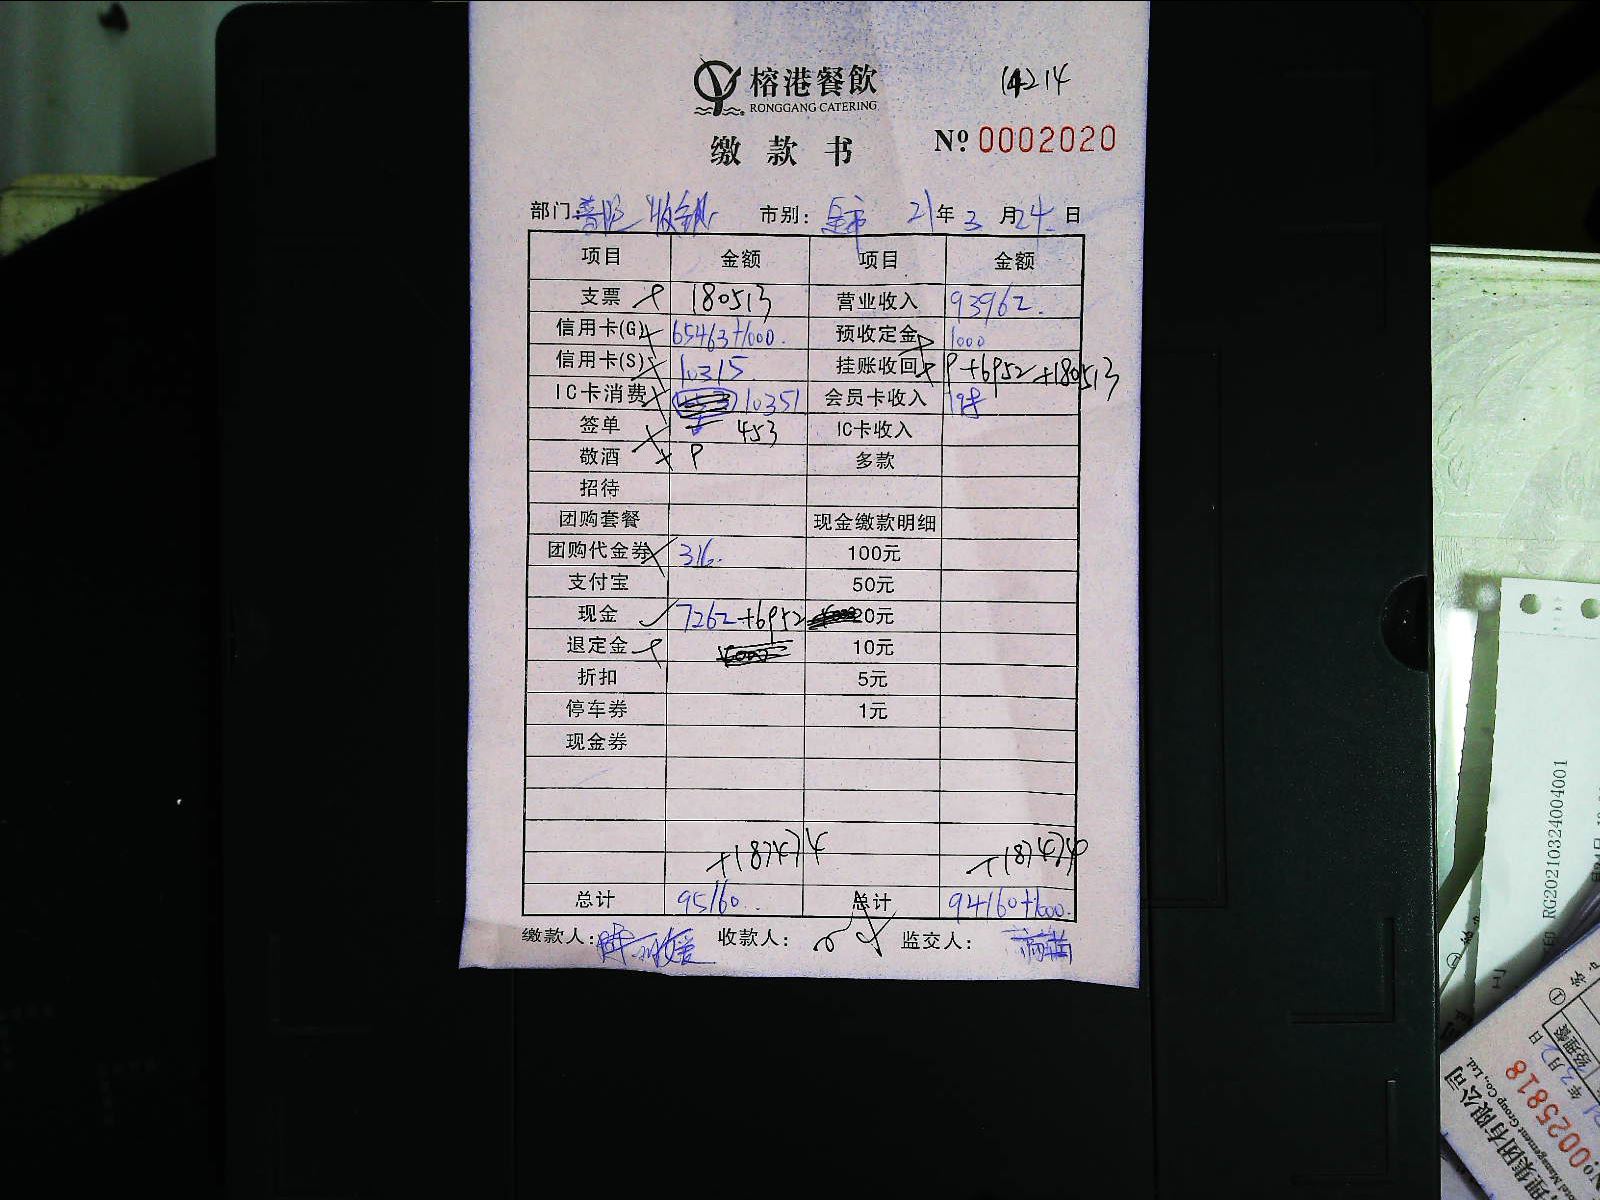 榕港餐飲 14214
RONGGANG CATERING
缴款书 Nº 0002020
部门: 普陀 收银 市别: 全市 21年3月24日
项目 金额 项目 金额
支票 180513 营业收入 93962.
信用卡(G) 65463+1000. 预收定金 1000
信用卡(S) 10315. 挂账收回 +6952+180513
IC卡消费 10351 会员卡收入 198
签单 453 IC卡收入
敬酒 多款
招待
团购套餐 现金缴款明细
团购代金券 316. 100元
支付宝 50元
现金 7262+6952 20元
退定金 10元
折扣 5元
停车券 1元
现金券
+187474 +187474
总计 95160. 总计 94160+1000.
缴款人: 收款人: 监交人:
RG20210324004001
集团有限公司
Management Group Co., Ltd.
0025818